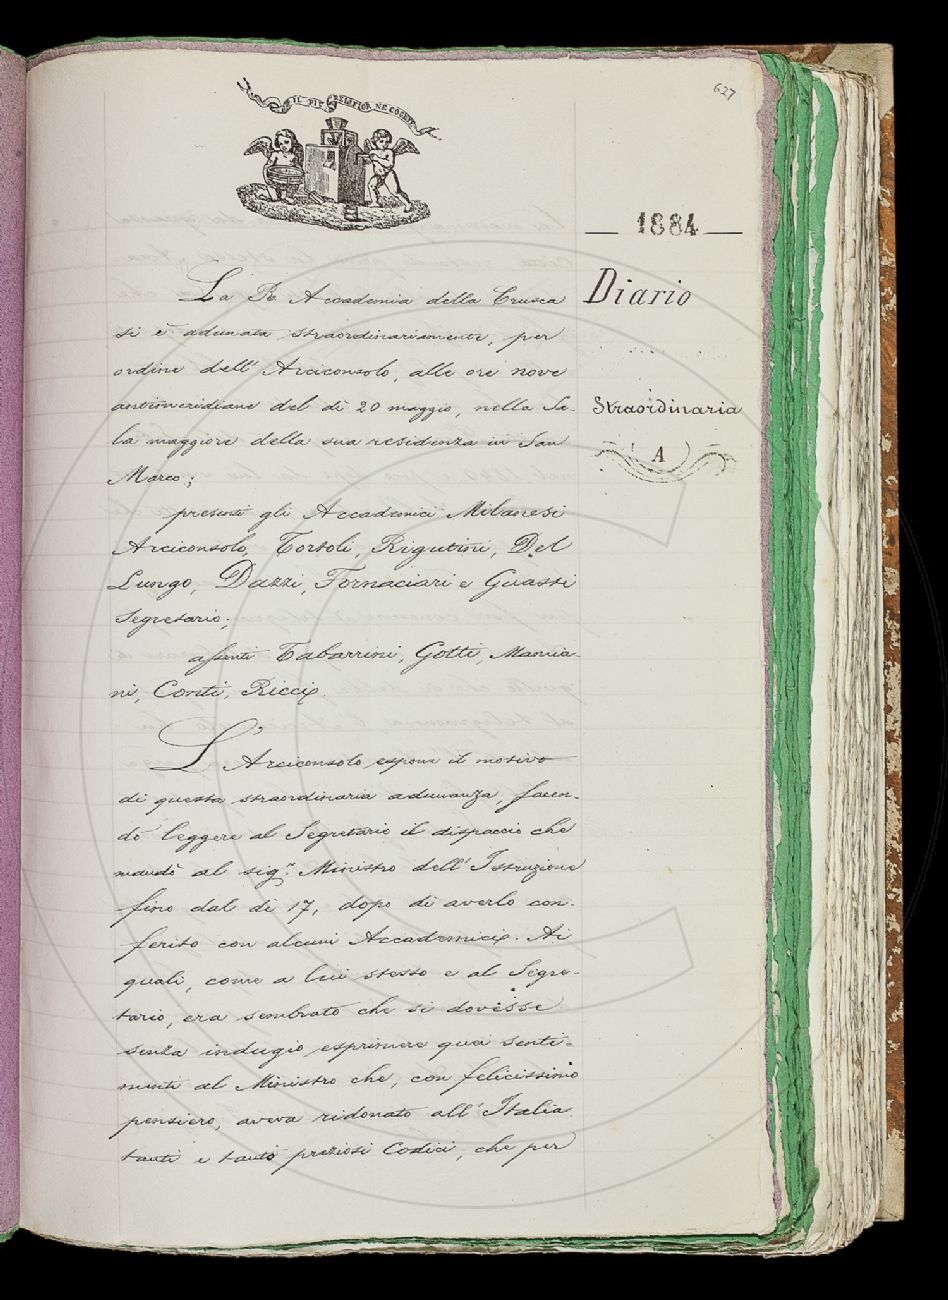 627
IL PIÙ BEL FIOR NE COGLIE
1884
Diario
Straordinaria
A
La R. Accademia della Crusca
si è adunata straordinariamente, per
ordine dell'Arciconsolo, alle ore nove
antimeridiane del dì 20 maggio, nella Sa-
la maggiore della sua residenza in San
Marco;
presenti gli Accademici Milanesi
Arciconsolo, Tortoli, Rigutini, Del
Lungo, Dazzi, Fornaciari e Guasti
Segretario;
assenti Tabarrini, Gotti, Mamia-
ni, Conti, Ricci.
L'Arciconsolo espone il motivo
di questa straordinaria adunanza, facen-
do leggere al Segretario il dispaccio che
mandò al sig.r Ministro dell'Istruzione
fino dal dì 17, dopo di averlo con-
ferito con alcuni Accademici. Ai
quali, come a lui stesso e al Segre-
tario, era sembrato che si dovesse
senza indugio esprimere quei senti-
menti al Ministro che, con felicissimo
pensiero, aveva ridonato all'Italia
tanti e tanto preziosi Codici, che per